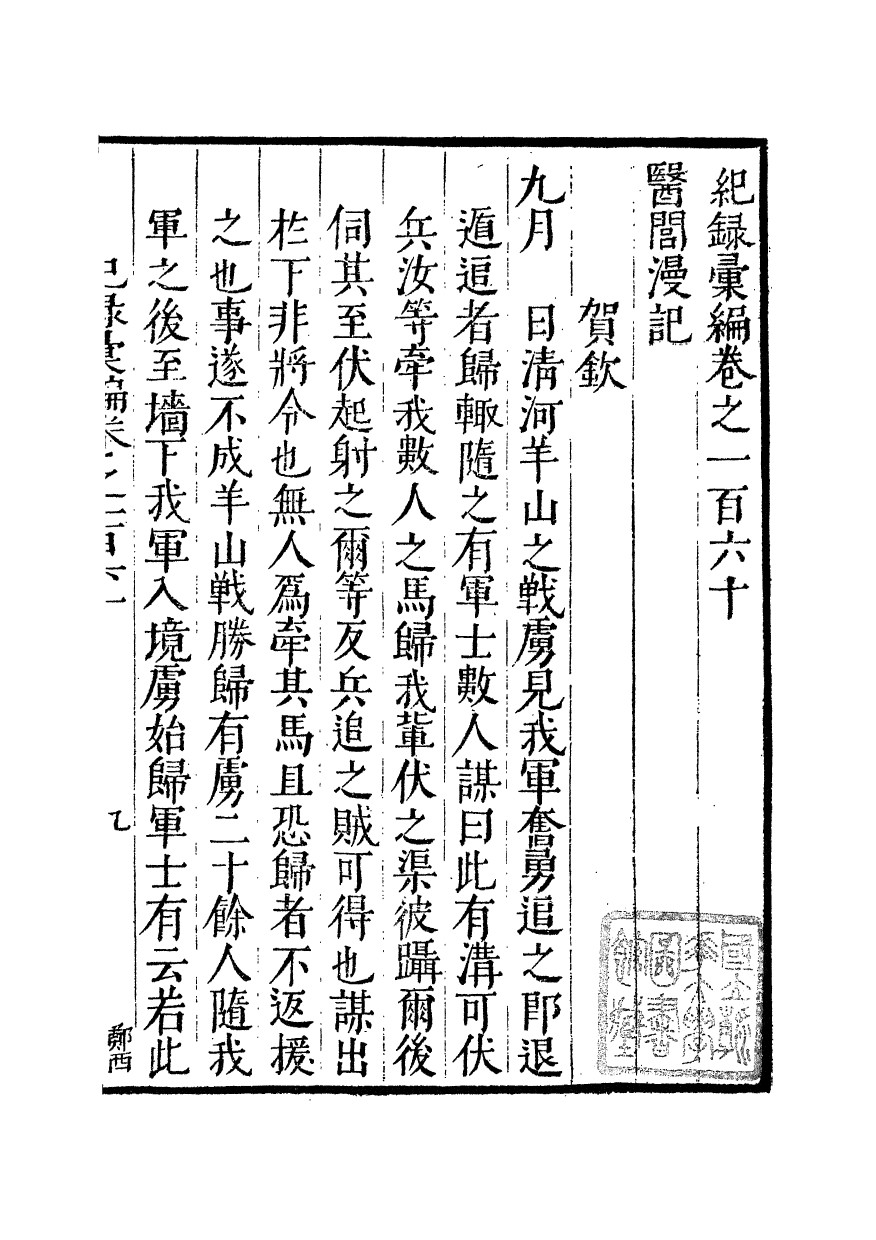 紀録彙編卷之一百六十
醫閭漫記
賀欽
九月　日清河羊山之戰虜見我軍奮勇追之即退
遁追者歸輙隨之有軍士數人謀曰此有溝可伏
兵汝等牽我數人之馬歸我輩伏之渠彼躡爾後
伺其至伏起射之爾等反兵追之賊可得也謀出
於下非將令也無人爲牽其馬且恐歸者不返援
之也事遂不成羊山戰勝歸有虜二十餘人隨我
軍之後至墻下我軍入境虜始歸軍士有云若此